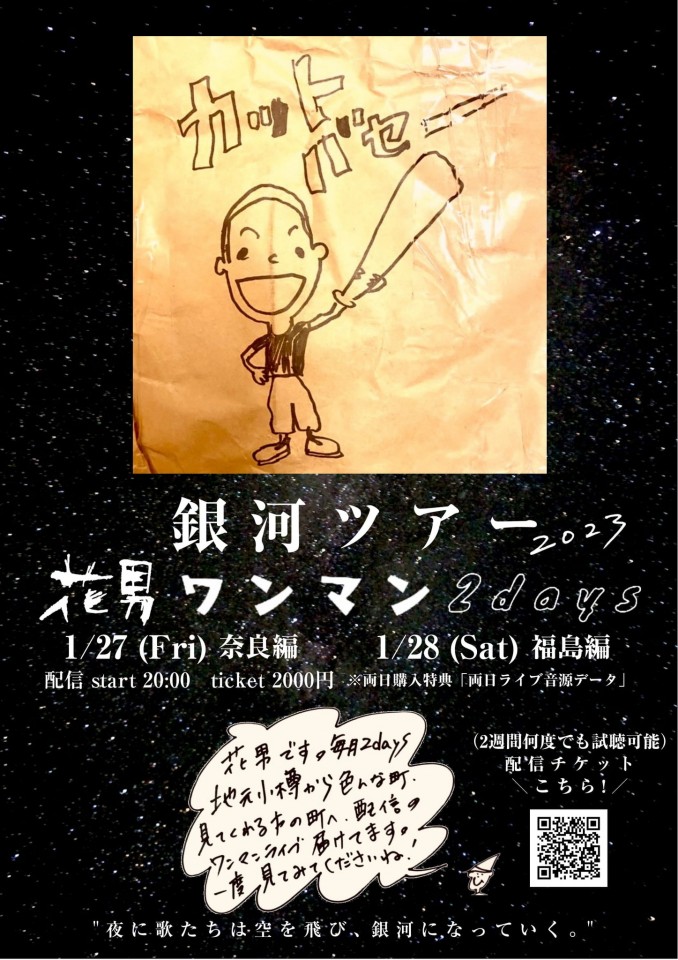 カットバセー
銀河ツアー2023
花男ワンマン2days
1/27 (Fri) 奈良編
1/28 (Sat) 福島編
配信 start 20:00 ticket 2000円 ※両日購入特典「両日ライブ音源データ」
花男です。毎月2days
地元小樽から色んな町.
見てくれる方の町へ.配信の
ワンマンライブ届けてます。
一度見てみてくださいね!
(2週間何度でも試聴可能)
配信チケット
＼こちら!／
"夜に歌たちは空を飛び、銀河になっていく。"